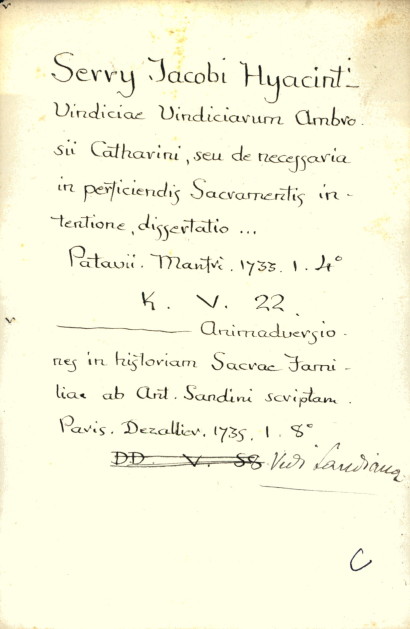 Serry Jacobi Hyacinti
Vindiciae Vindiciarum Ambro-
sii Catharini, seu de necessaria
in perficiendis Sacramentis in-
tentione, dissertatio ...
Patavii. Manfrè. 1733. 1. 4°
K. V. 22.
——— Animadversio-
nes in historiam Sacrae Fami-
liae ab Ant. Sandini scriptam.
Paris. Dezallier. 1735. 1. 8°
DD. V. 58 Vidi
C